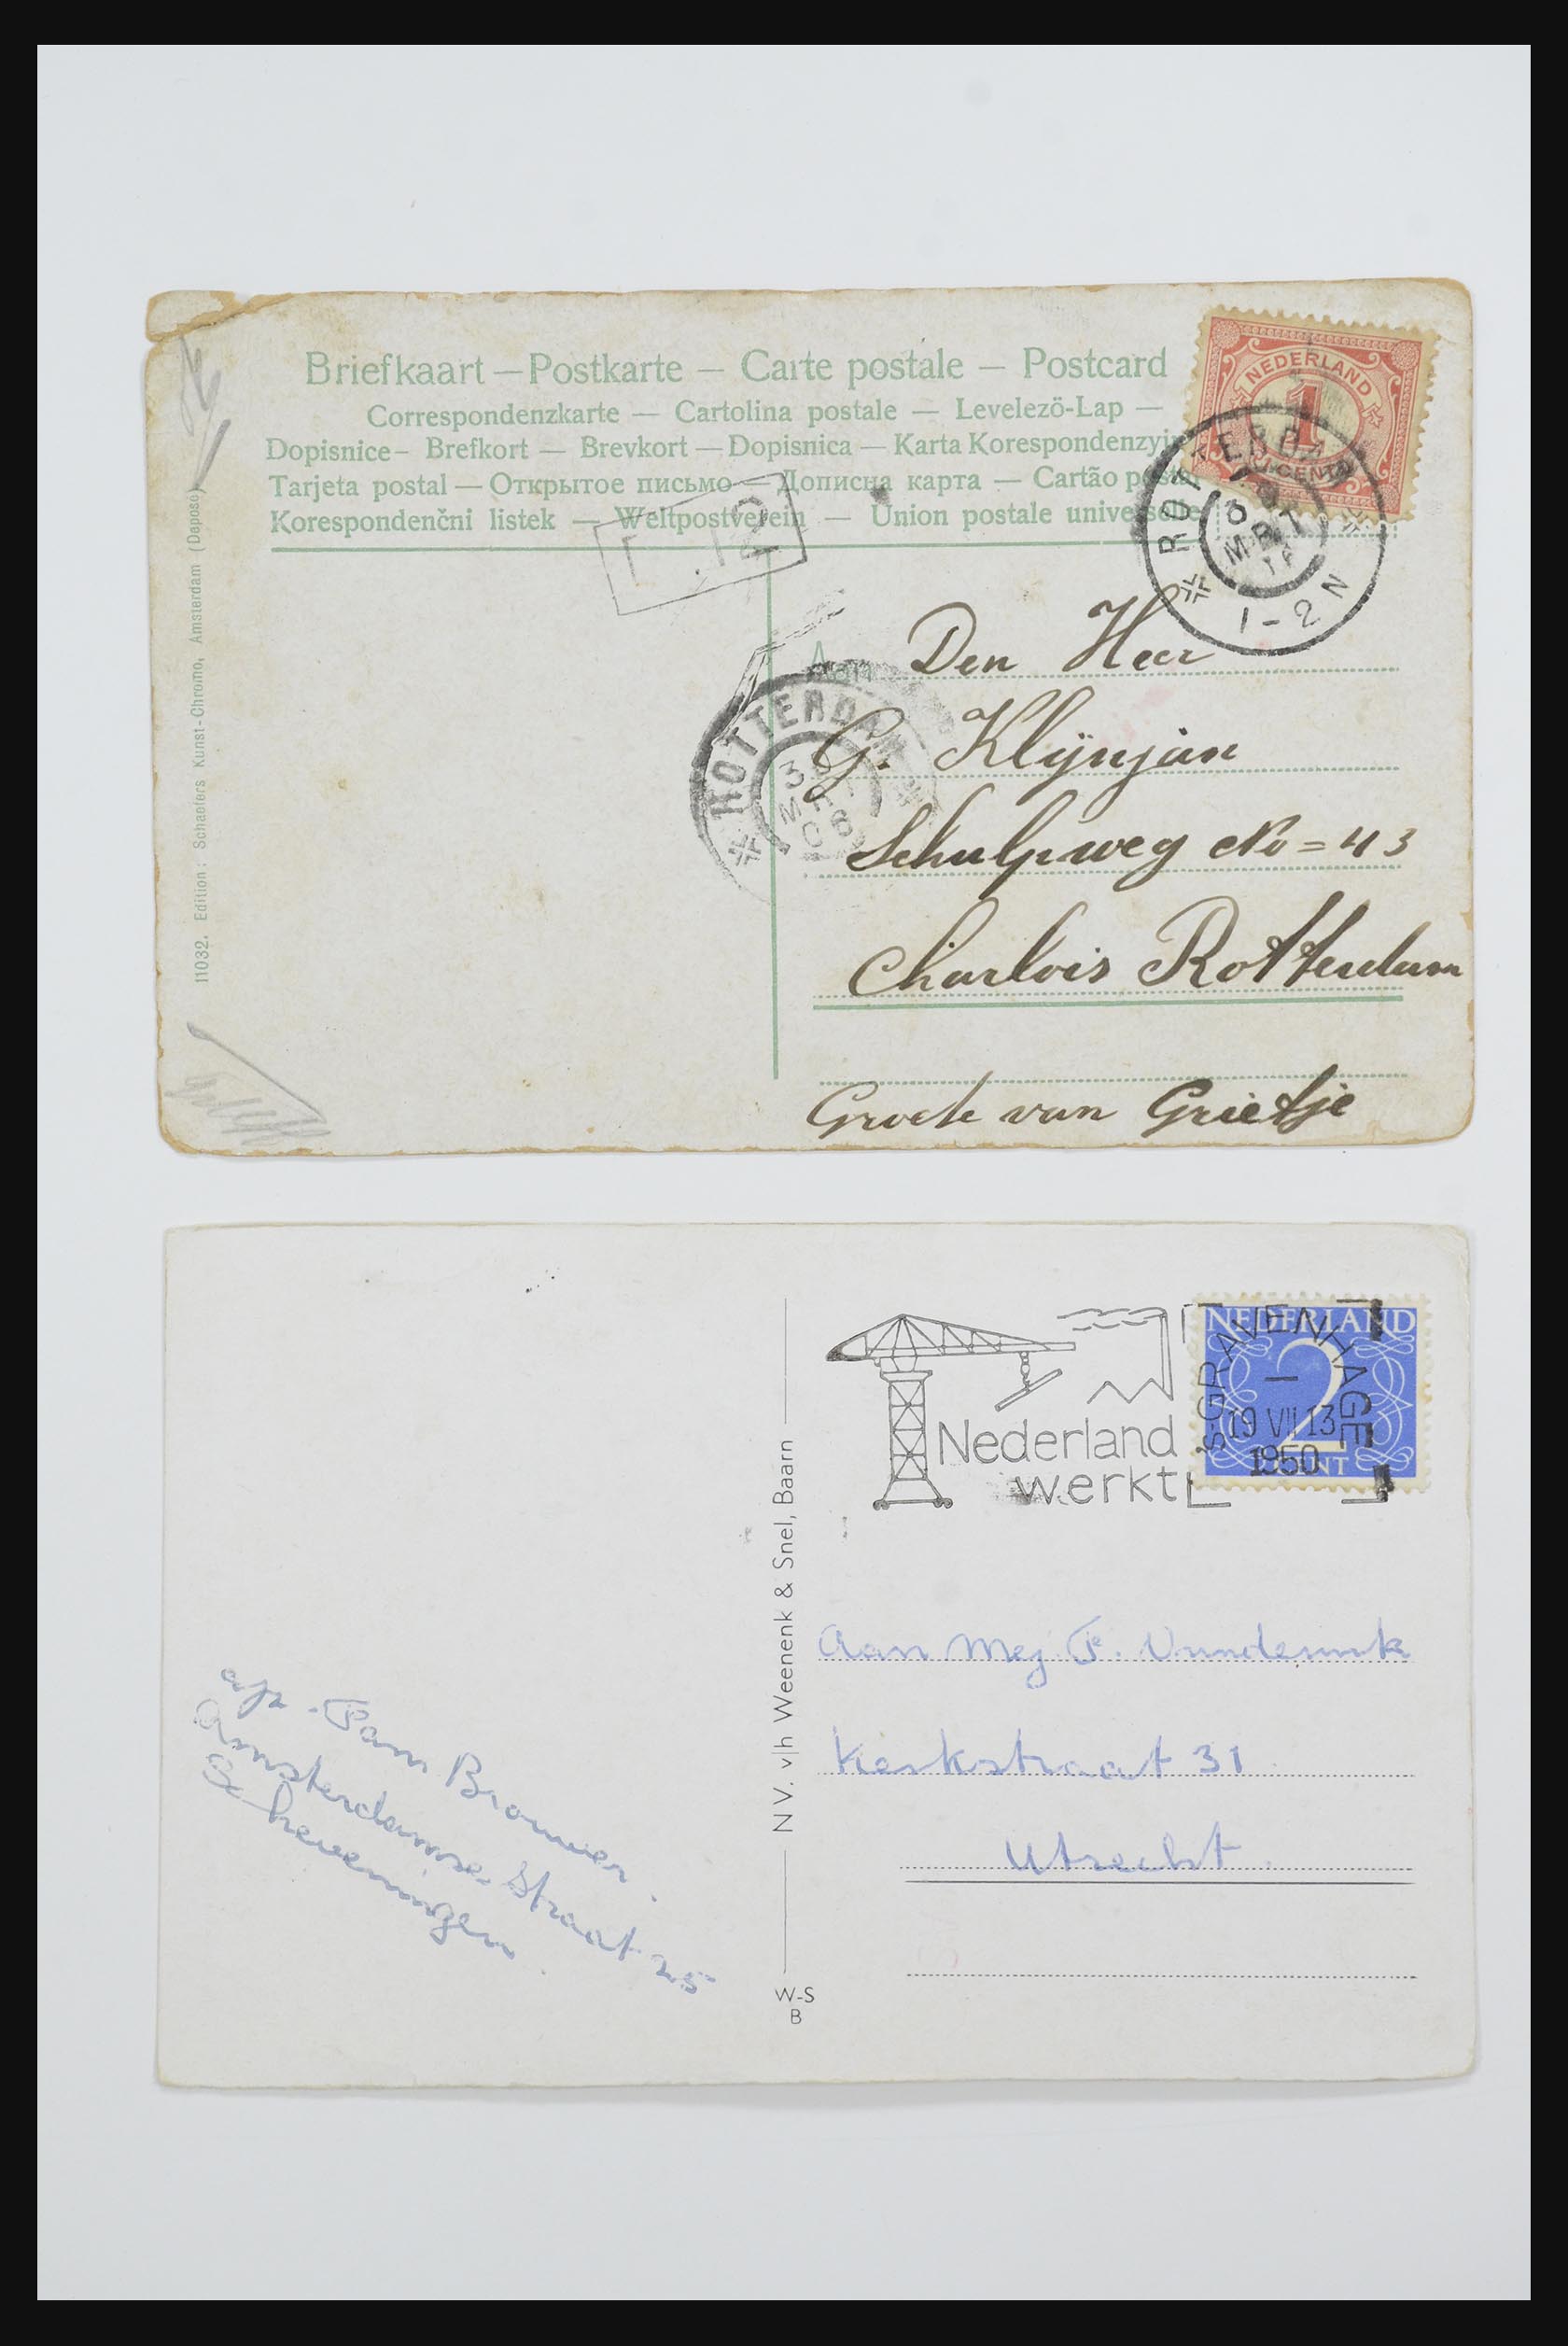 Briefkaart — Postkarte — Carte postale — Postcard
Correspondenzkarte — Cartolina postale — Levelezö-Lap —
Dopisnice — Brefkort — Brevkort — Dopisnica — Karta Korespondenzyjn
Tarjeta postal — Открытое письмо — Дописна карта — Cartão postal
Korespondenčni listek — Weltpostverein — Union postale universelle
NEDERLAND
1
CENT
ROTTERDAM
1-2 N
T. 12
11032. Edition: Schaefers Kunst-Chromo, Amsterdam (Daposo)
ROTTERDAM
Aan
Den Heer
G. Klijnjan
Schulpweg No = 43
Charlois Rotterdam
Groete van Grietje
NEDERLAND
2
CENT
's-GRAVENHAGE
19 VII 13
1950
Nederland
werkt
N.V. v|h Weenenk & Snel, Baarn
W-S
B
Aan Mej. F.
Kerkstraat 31
Utrecht.
Fam Brouwer.
Amsterdamse Straat 25
Scheveningen.